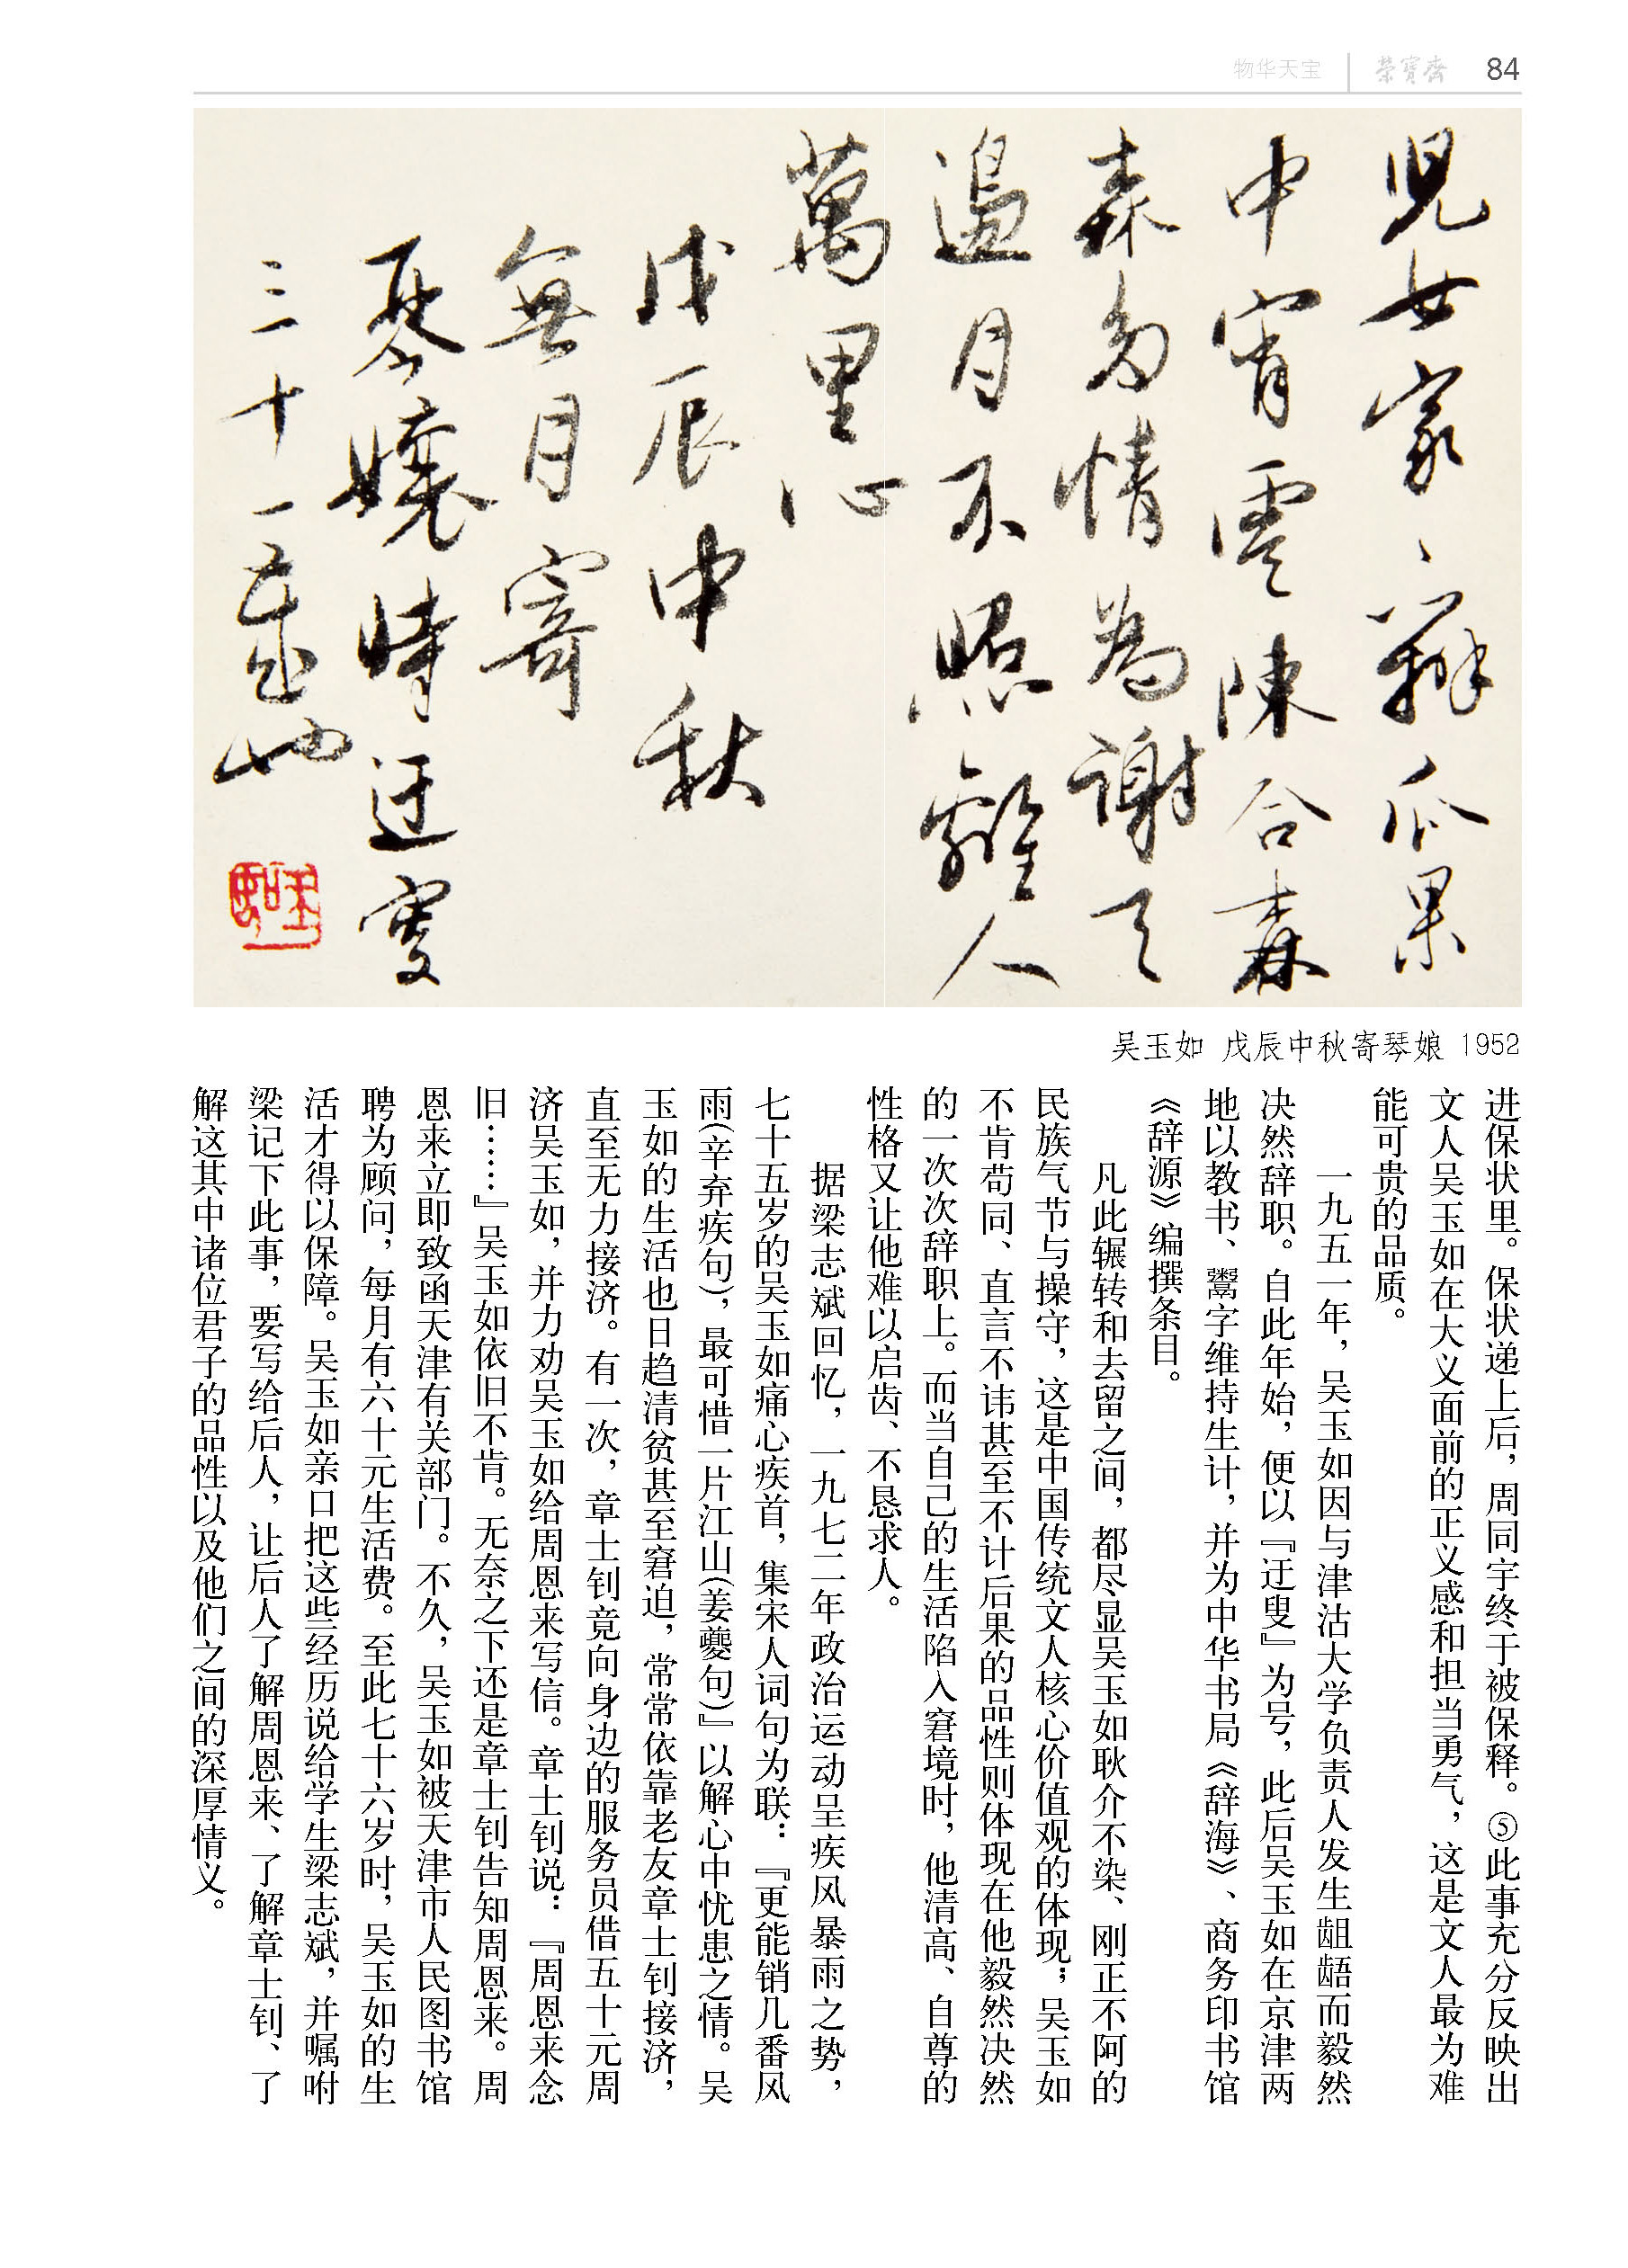 物华天宝 荣宝斋 84
兒女家、辦瓜果
中宵雲陳合森
森多情為謝天
邊月不照離人
萬里心
戊辰中秋
無月寄
琴孃時迂叟
三十一歲也
吴玉如 戊辰中秋寄琴娘 1952
进保状里。保状递上后，周同宇终于被保释。⑤此事充分反映出
文人吴玉如在大义面前的正义感和担当勇气，这是文人最为难
能可贵的品质。
一九五一年，吴玉如因与津沽大学负责人发生龃龉而毅然
决然辞职。自此年始，便以『迂叟』为号，此后吴玉如在京津两
地以教书、鬻字维持生计，并为中华书局《辞海》、商务印书馆
《辞源》编撰条目。
凡此辗转和去留之间，都尽显吴玉如耿介不染、刚正不阿的
民族气节与操守，这是中国传统文人核心价值观的体现；吴玉如
不肯苟同、直言不讳甚至不计后果的品性则体现在他毅然决然
的一次次辞职上。而当自己的生活陷入窘境时，他清高、自尊的
性格又让他难以启齿、不恳求人。
据梁志斌回忆，一九七二年政治运动呈疾风暴雨之势，
七十五岁的吴玉如痛心疾首，集宋人词句为联：『更能销几番风
雨(辛弃疾句)，最可惜一片江山(姜夔句)』以解心中忧患之情。吴
玉如的生活也日趋清贫甚至窘迫，常常依靠老友章士钊接济，
直至无力接济。有一次，章士钊竟向身边的服务员借五十元周
济吴玉如，并力劝吴玉如给周恩来写信。章士钊说：『周恩来念
旧……』吴玉如依旧不肯。无奈之下还是章士钊告知周恩来。周
恩来立即致函天津有关部门。不久，吴玉如被天津市人民图书馆
聘为顾问，每月有六十元生活费。至此七十六岁时，吴玉如的生
活才得以保障。吴玉如亲口把这些经历说给学生梁志斌，并嘱咐
梁记下此事，要写给后人，让后人了解周恩来、了解章士钊、了
解这其中诸位君子的品性以及他们之间的深厚情义。